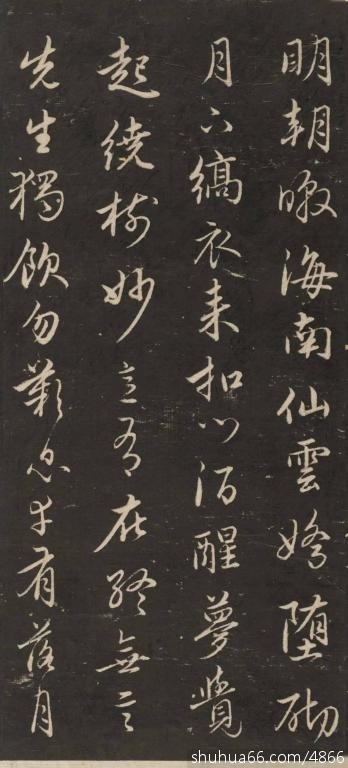 明朝暾海南仙雲嬌墮砌
月下縞衣來扣門酒醒夢覺
起繞樹妙意有在終無言
先生獨飲勿歎息幸有落月
shuhua66.com/4866